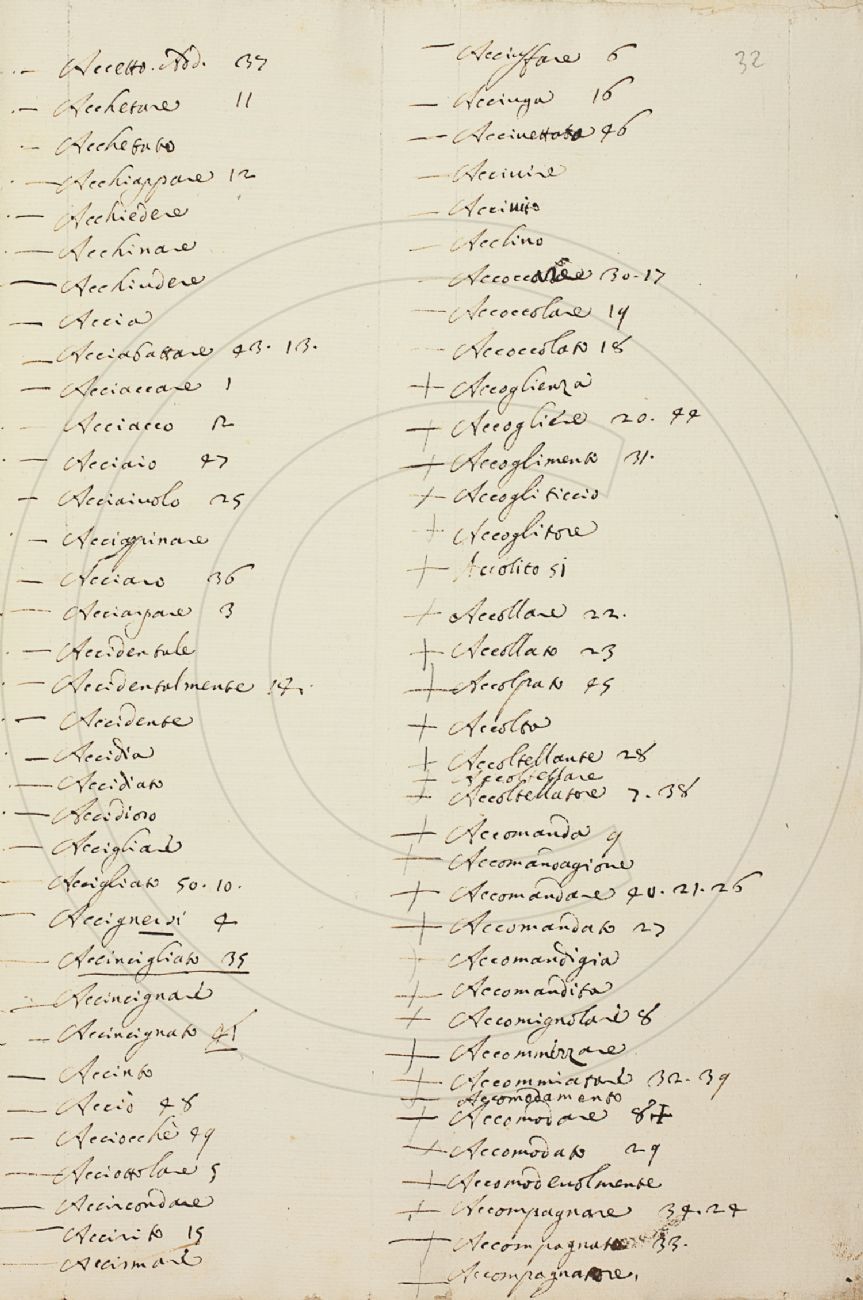 — Accetto. Add. 37
— Acchetare 11
— Acchetato
— Acchiappare 12
— Acchiedere
— Acchinare
— Acchiudere
— Accia
— Acciabattare 43. 13.
— Acciaccare 1
— Acciacco 2
— Acciaio 47
— Acciaiuolo 25
— Acciapinare
— Acciaro 36
— Acciarpare 3
— Accidentale
— Accidentalmente 14.
— Accidente
— Accidia
— Accidiato
— Accidioso
— Accigliare
— Accigliato 50. 10.
— Accignersi 4
— Accincigliato 35
— Accincignare
— Accincignato 41
— Accinto
— Acciò 48
— Acciocchè 49
— Acciottolare 5
— Accircondare
— Accirito 15
— Accismare
32
— Acciuffare 6
— Acciuga 16
— Acciuettato 46
— Acciuire
— Acciuito
— Acclino
— Accoccare 30. 17
— Accoccolare 19
— Accoccolato 18
+ Accoglienza
+ Accogliere 20. 44
+ Accoglimento 31.
+ Accogliticcio
+ Accoglitore
+ Accolito 51
+ Accollare 22.
+ Accollato 23
+ Accolpato 45
+ Accolta
+ Accoltellante 28
+ Accoltellare
+ Accoltellatore 7. 38
+ Accomanda 9
+ Accomandagione
+ Accomandare 40. 21. 26
+ Accomandato 27
+ Accomandigia
+ Accomandita
+ Accomignolare 8
+ Accommezzare
+ Accommiatare 32. 39
+ Accomodamento
+ Accomodare 8+
+ Accomodato 29
+ Accomodevolmente
+ Accompagnare 34. 24
+ Accompagnato 33.
+ Accompagnatore.